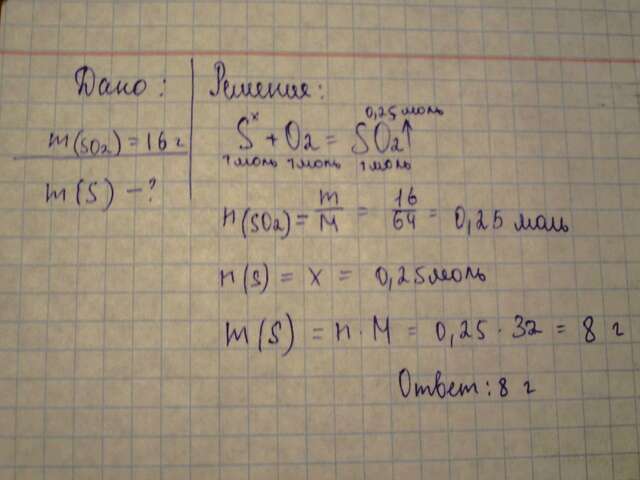 Дано:
m(SO2) = 16 г
m(S) – ?
Решение:
x 0,25 моль
S + O2 = SO2↑
1 моль 1 моль 1 моль
n(SO2) = m/M = 16/64 = 0,25 моль
n(S) = x = 0,25 моль
m(S) = n · M = 0,25 · 32 = 8 г
Ответ: 8 г